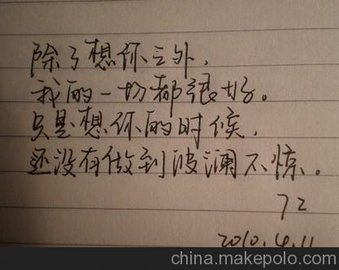 除了想你之外，
我的一切都很好。
只是想你的时候，
还没有做到波澜不惊。
72
2010.4.11
china.makepolo.com